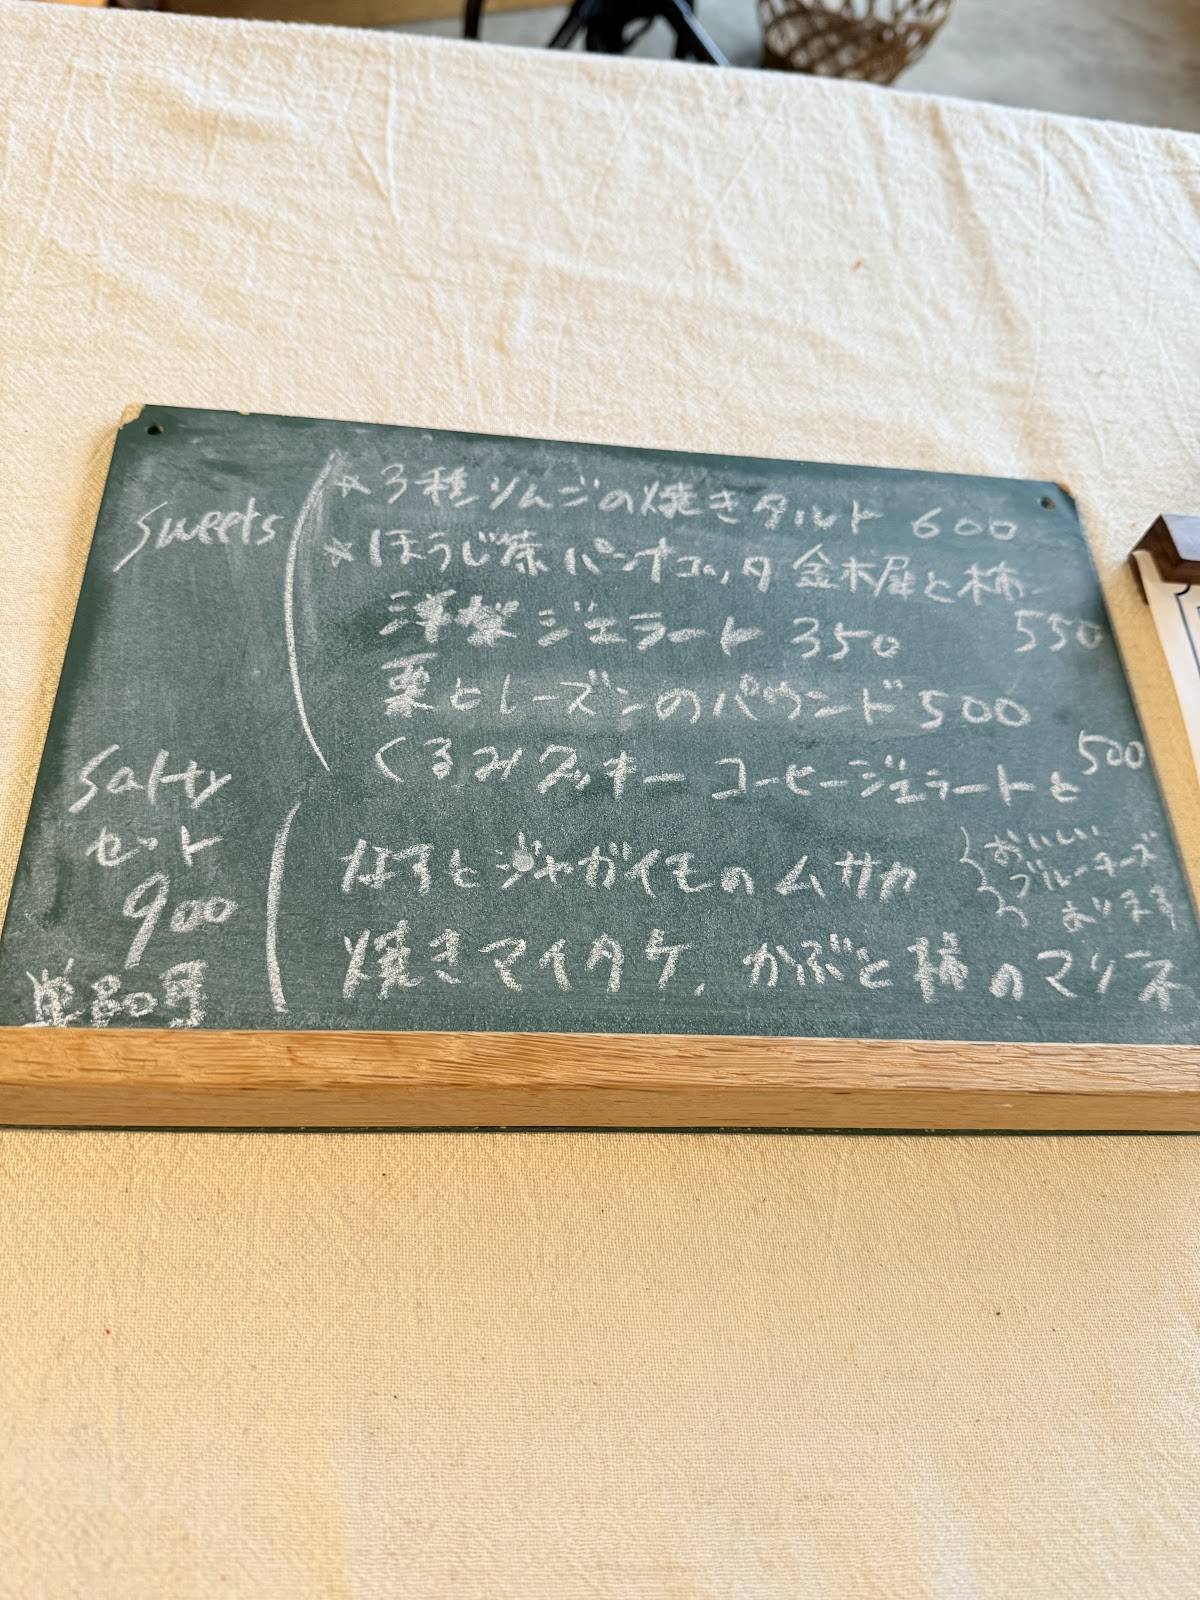 Sweets
☆3種りんごの焼きタルト 600
☆ほうじ茶パンナコッタ 金木犀と柿 550
洋梨ジェラート 350
栗とレーズンのパウンド 500
くるみクッキー コーヒージェラートと 500
Salty
セット
900
単品可
なすとジャガイモのムサカ
おいしい
ブルーチーズ
あります
焼きマイタケ、かぶと柿のマリネ